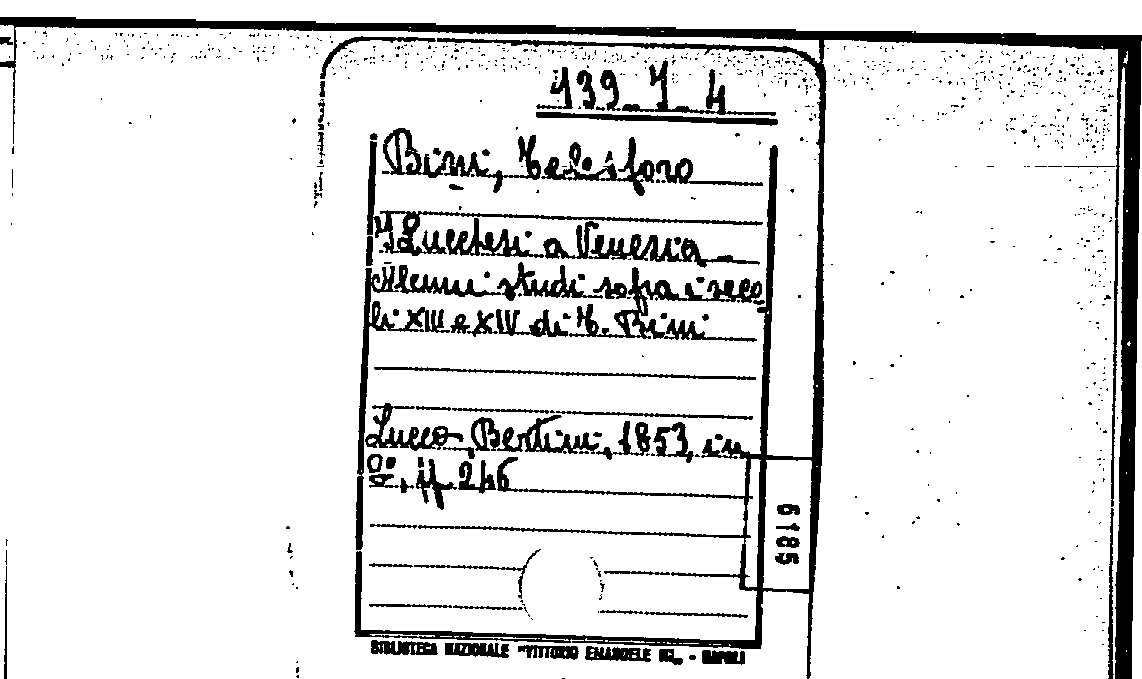 139_J_4
Bini, Telesforo
I Lucchesi a Venezia -
Alcuni studi sopra i seco
li XIII e XIV di T. Bini
Lucca, Bertini, 1853, in
8º, pp. 246
6185
BIBLIOTECA NAZIONALE "VITTORIO EMANUELE III" - NAPOLI